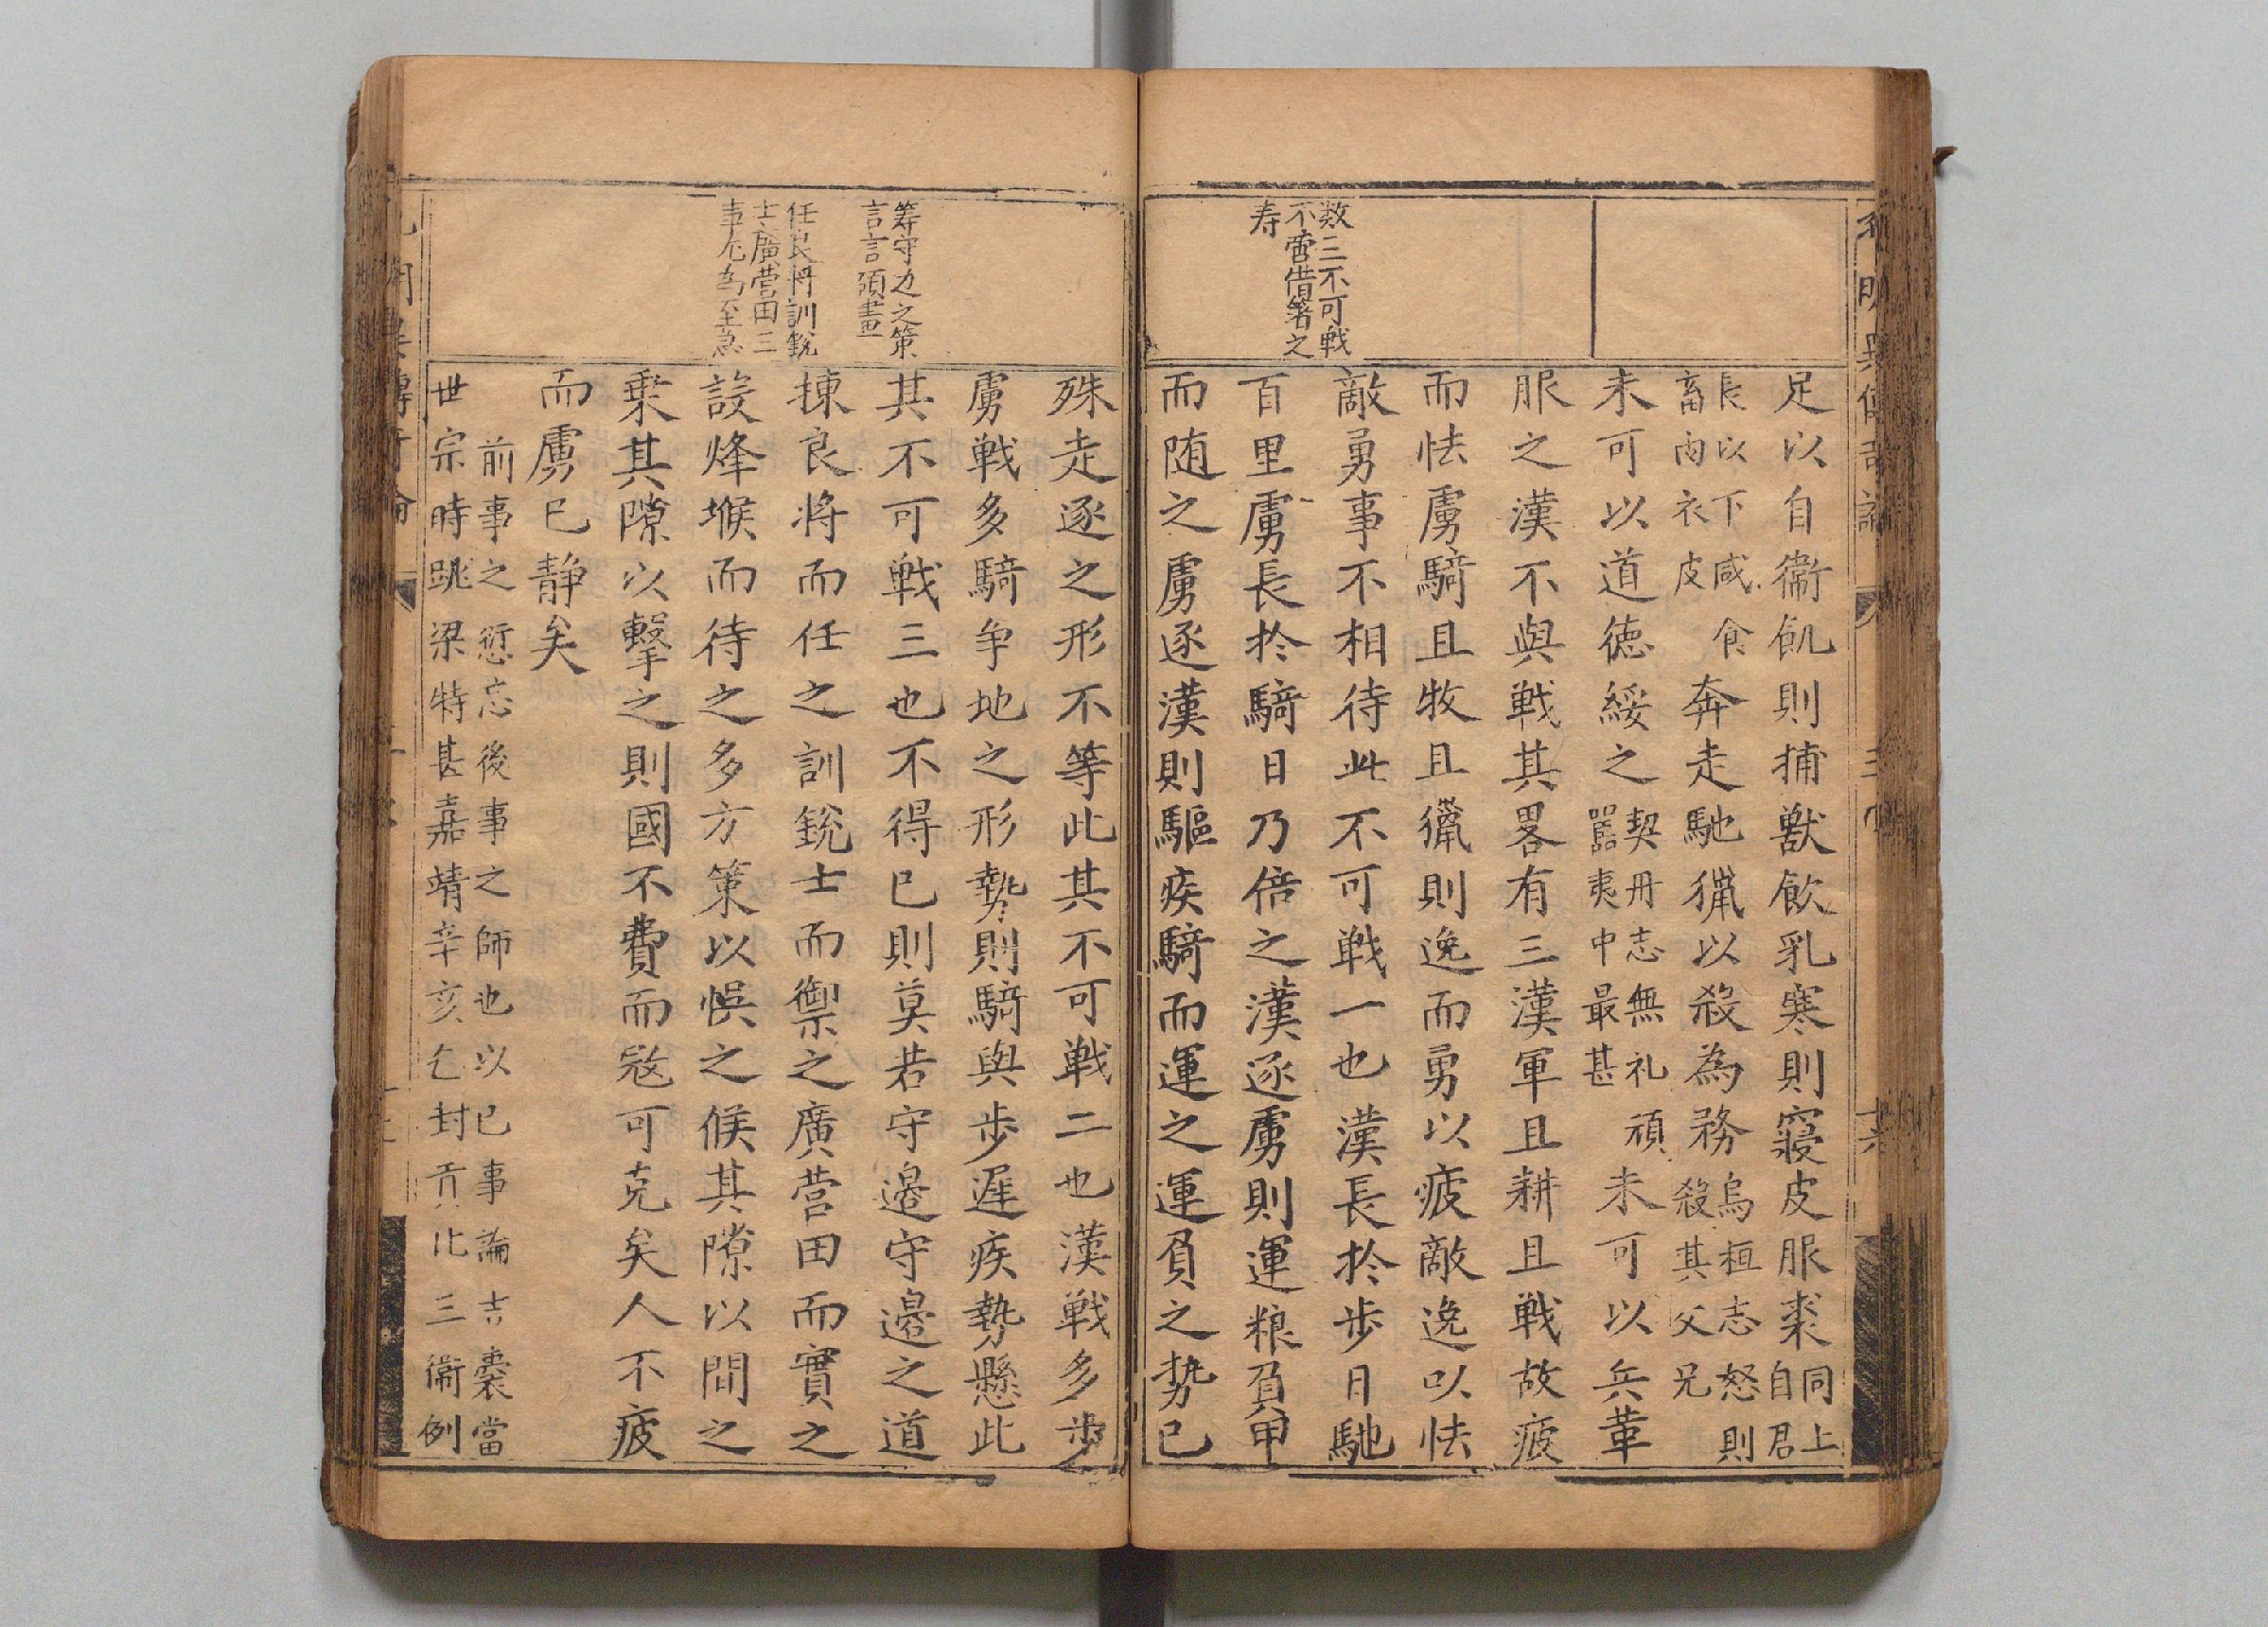 数三不可戦
不啻借箸之
寿
足以自衞飢則捕獣飲乳寒則寢皮服裘同上自君
長以下咸食畜肉衣皮奔走馳獵以殺為務烏桓志怒則殺其父兄
未可以道徳綏之契丹志無礼頑嚚夷中最甚未可以兵革
服之漢不與戦其畧有三漢軍且耕且戦故疲
而怯虜騎且牧且獵則逸而勇以疲敵逸以怯
敵勇事不相待此不可戦一也漢長扵歩日馳
百里虜長扵騎日乃倍之漢逐虜則運粮負甲
而随之虜逐漢則驅疾騎而運之運負之势已
筹守边之策
言言須畫
任良将訓銳
士廣营田三
事尤為至急
殊走逐之形不等此其不可戦二也漢戦多歩
虜戦多騎争地之形勢則騎與歩遲疾勢懸此
其不可戦三也不得已則莫若守邊守邊之道
揀良将而任之訓銳士而禦之廣营田而實之
設烽堠而待之多方策以悞之候其隙以間之
乗其隙以擊之則國不費而冦可克矣人不疲
而虜已静矣
前事之愆忘後事之師也以已事論吉囊當
世宗時跳梁特甚嘉靖辛亥乞封貢比三衞例